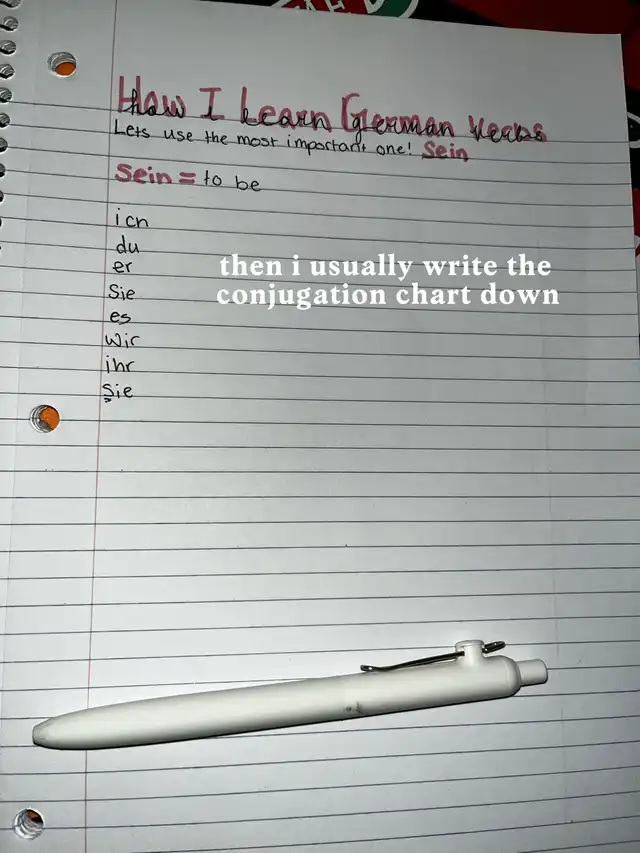 How I Learn German Verbs
Lets use the most important one! Sein
Sein = to be
ich
du
er
Sie
es
wir
ihr
Sie
then i usually write the
conjugation chart down